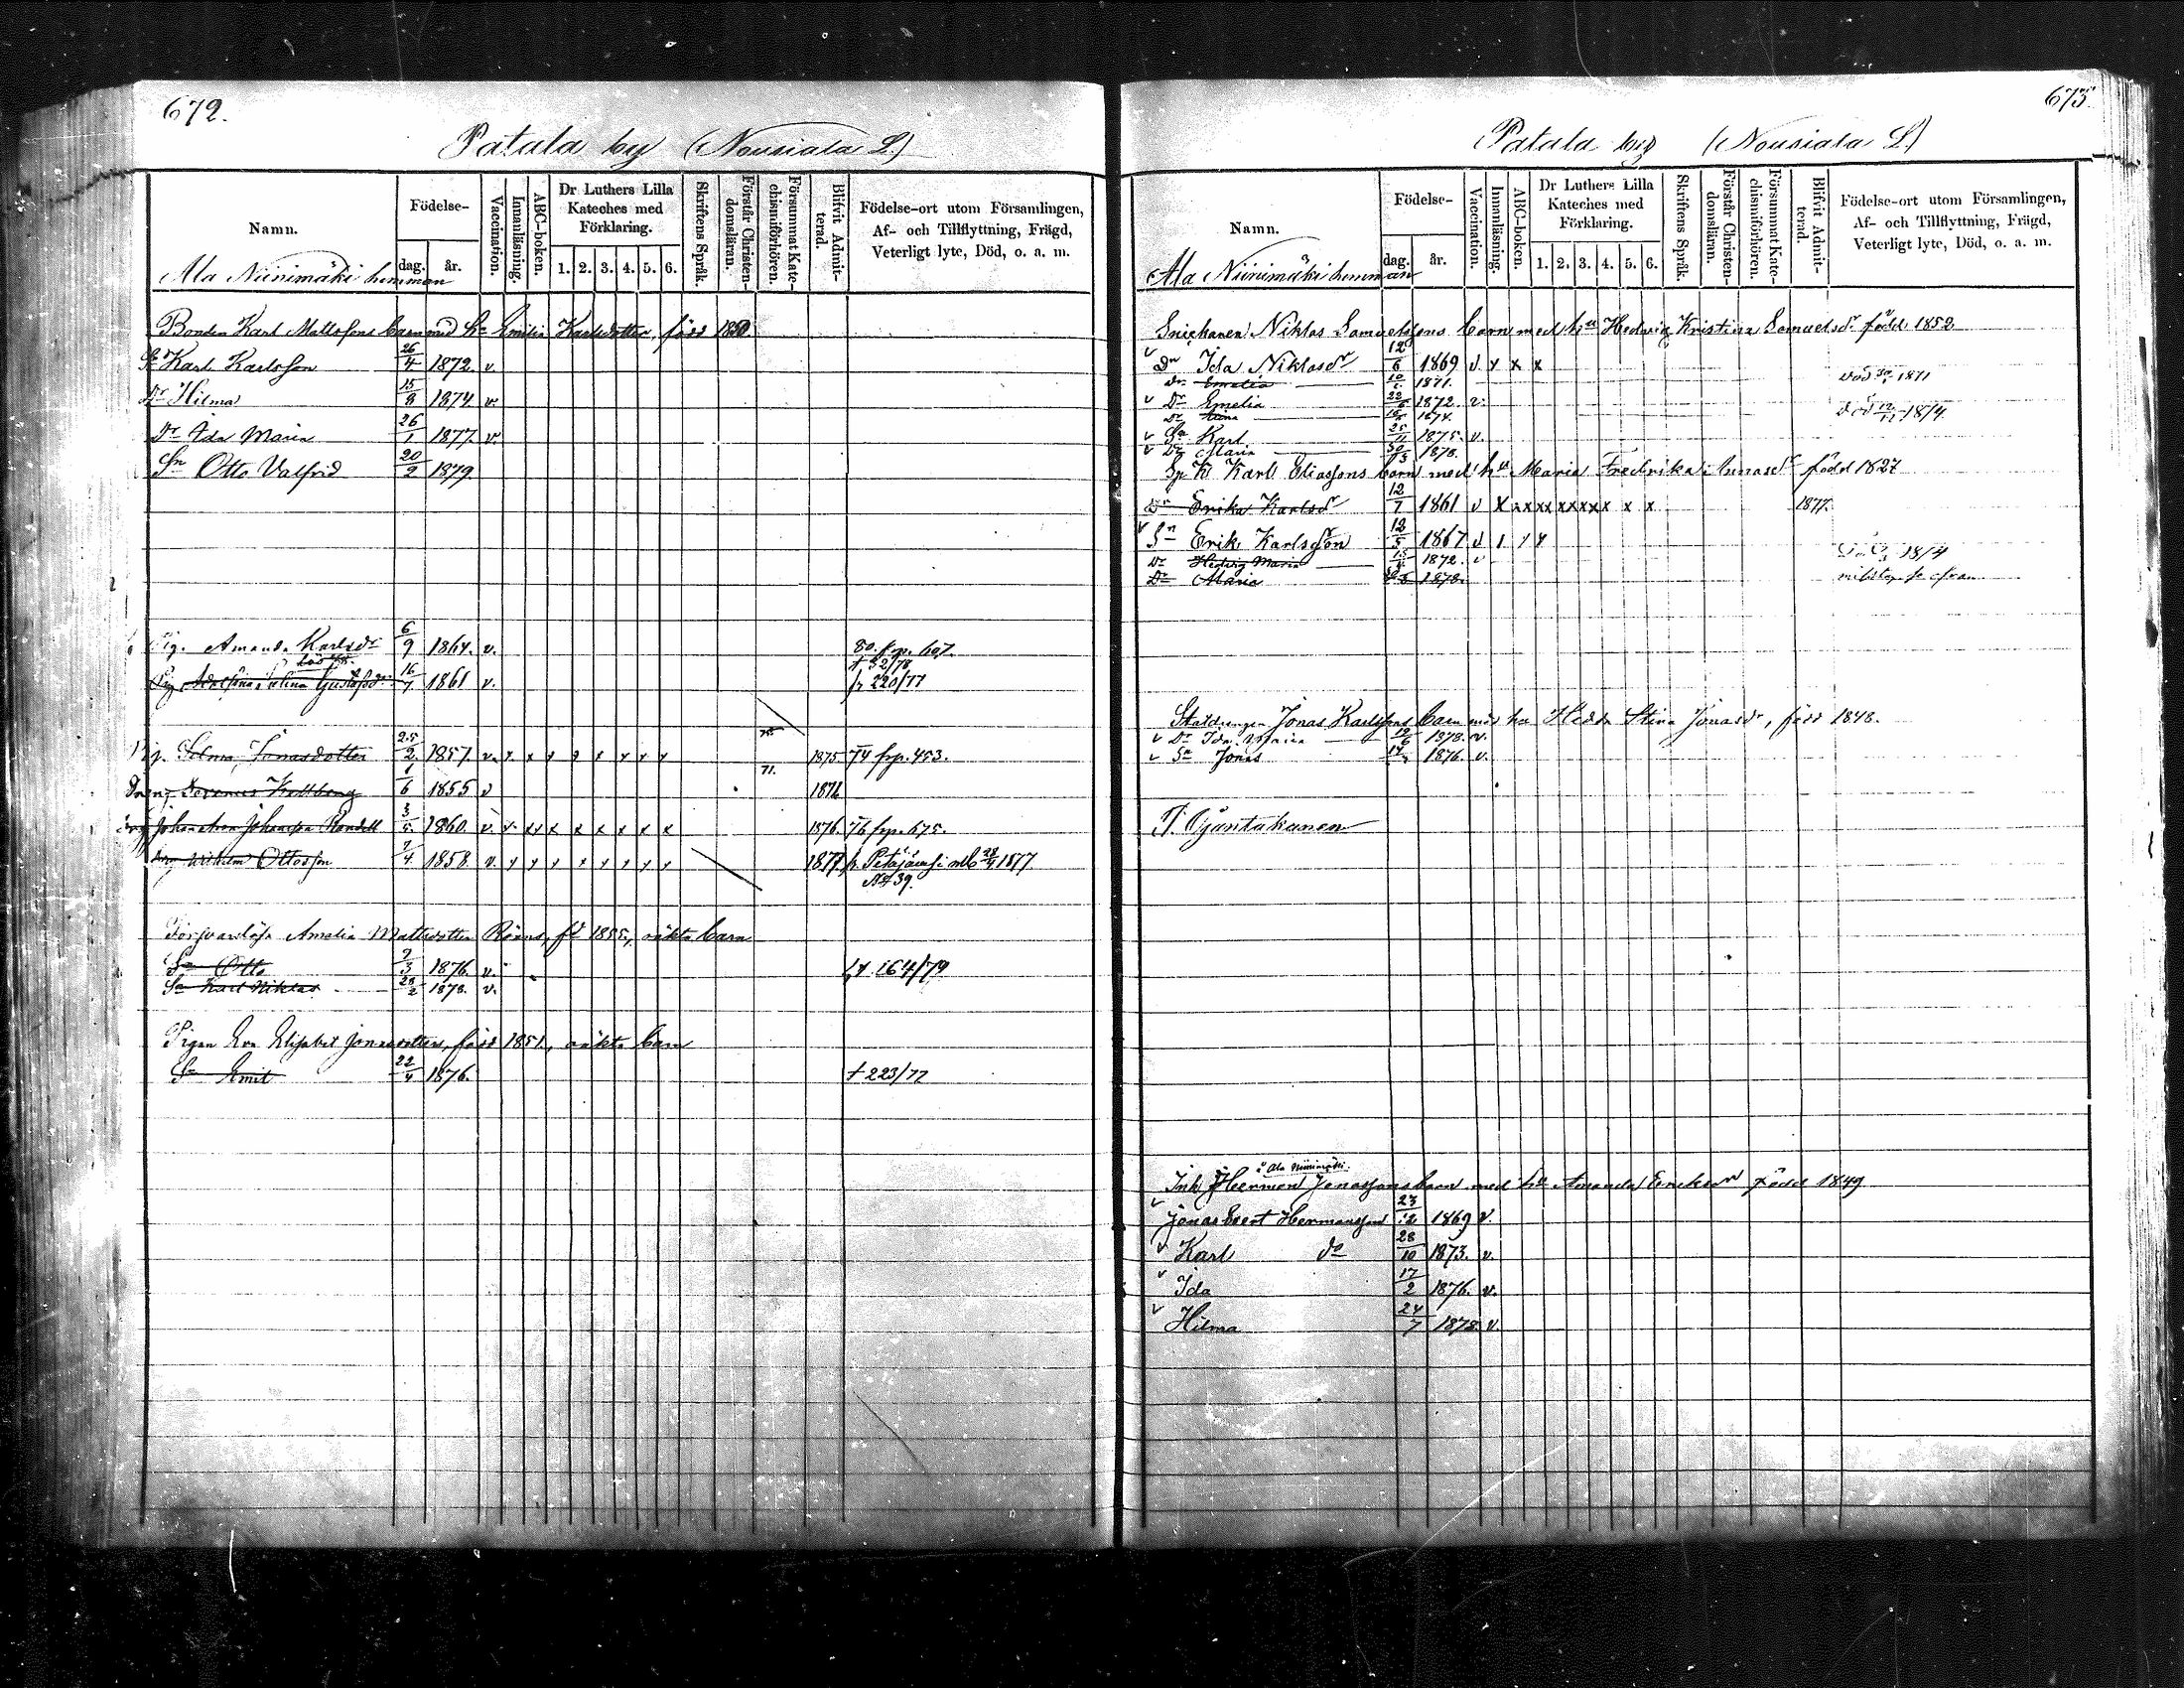 672.
Patala by (Nousiala L.)
Namn.
Födelse-
dag. år.
Vaccination.
Innanläsning.
ABC-boken.
Dr Luthers Lilla Kateches med Förklaring.
1. 2. 3. 4. 5. 6.
Skriftens Språk.
Förstår Christen-domsläran.
Försummat Kate-chismiförhören.
Blifvit Admit-terad.
Födelse-ort utom Församlingen, Af- och Tillflyttning, Frägd, Veterligt lyte, Död, o. a. m.
Ala Niinimäki hemman
Bonden Karl Mattssons barn med h. Emilia Karlsdotter, född 1850.
Karl Karlsson 26/4 1872. v.
Dr Hilma 15/8 1874. v.
Dr Ida Maria 26/1 1877. v.
Sn Otto Valfrid 20/2 1879.
Pig. Amanda Karlsdr 6/9 1864. v. 80. fr p. 607.
† 52/78
Pig. Gustafsdr 16/7 1861 v. fr 220/77
Pig. Selma Jonasdotter 25/2 1857. v. x x x x x x x x 75. 1875 74 fr p. 453.
1/6 1855 v 71. 1876
Johansson Rundell 3/5 1860. v. x x x x x x x x x 1876. 76 fr p. 675.
Drg Wilhelm Ottosson 7/4 1858. v. x x x x x x x x 1877. fr. Petäjävesi mb 28/4 1877.
No 39.
Försvarslösa Amelia Mattsdotter fd 1855, oäkta barn
Sn Otto 7/3 1876. v. 164/79
Sn Karl Niklas 28/2 1878. v.
Pigan Eva Elisabet Jonasdotter, född 1851, oäkta barn
Sn Emil 22/4 1876. † 223/77
673.
Patala by (Nousiala L.)
Namn.
Födelse-
dag. år.
Vaccination.
Innanläsning.
ABC-boken.
Dr Luthers Lilla Kateches med Förklaring.
1. 2. 3. 4. 5. 6.
Skriftens Språk.
Förstår Christen-domsläran.
Försummat Kate-chismiförhören.
Blifvit Admit-terad.
Födelse-ort utom Församlingen, Af- och Tillflyttning, Frägd, Veterligt lyte, Död, o. a. m.
Ala Niinimäki hemman
Niklas Samuelssons barn med hu Hedvig Kristina Samuelsdr född 1852
v Dr Ida Niklasdr 12/6 1869 v x x x
Dr Emelia 1871. död 1871
v Dr Emelia 22/6 1872. v.
Dr Stina 1874. död 1874.
v Sn Karl 25/11 1875. v.
v Dr Maria 1878.
Karl Eliassons barn med hu Maria Fredrika född 1827
Dr Erika Karlsdr 12/7 1861 v x x x x x x x x x x x x 1877.
v Sn Erik Karlsson 12/5 1867 v
Dr Hedvig Maria 1872. v 1874
Dr Maria 1878.
Jonas Karlssons barn med hu Hedda Stina Jonasdr, född 1848.
v Dr Ida Maria 1878. v.
v Sn Jonas 1876. v.
T. Ojantakanen
å Ala Niinimäki.
Inh Herman Jonassons barn med hu Amanda Eriksdr född 1849
v Jonas Evert Hermansson 23/12 1869 v.
v Karl do 28/10 1873. v.
v Ida 17/2 1876. v.
v Hilma 24/7 1878. v